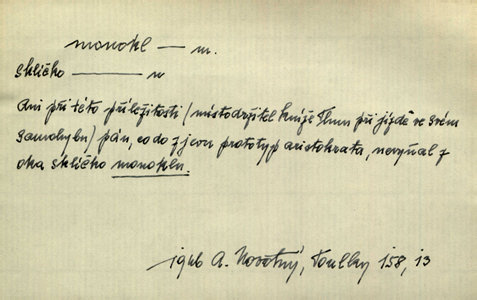 monokl — m.
sklíčko — n
Ani při této příležitosti /místodržitel kníže Thun při jízdě ve svém
samohybu/ pán, co do zjevu prototyp aristokrata, nevyňal z
oka sklíčko monoklu.
1946 A. Novotný, Toulky 158, 13